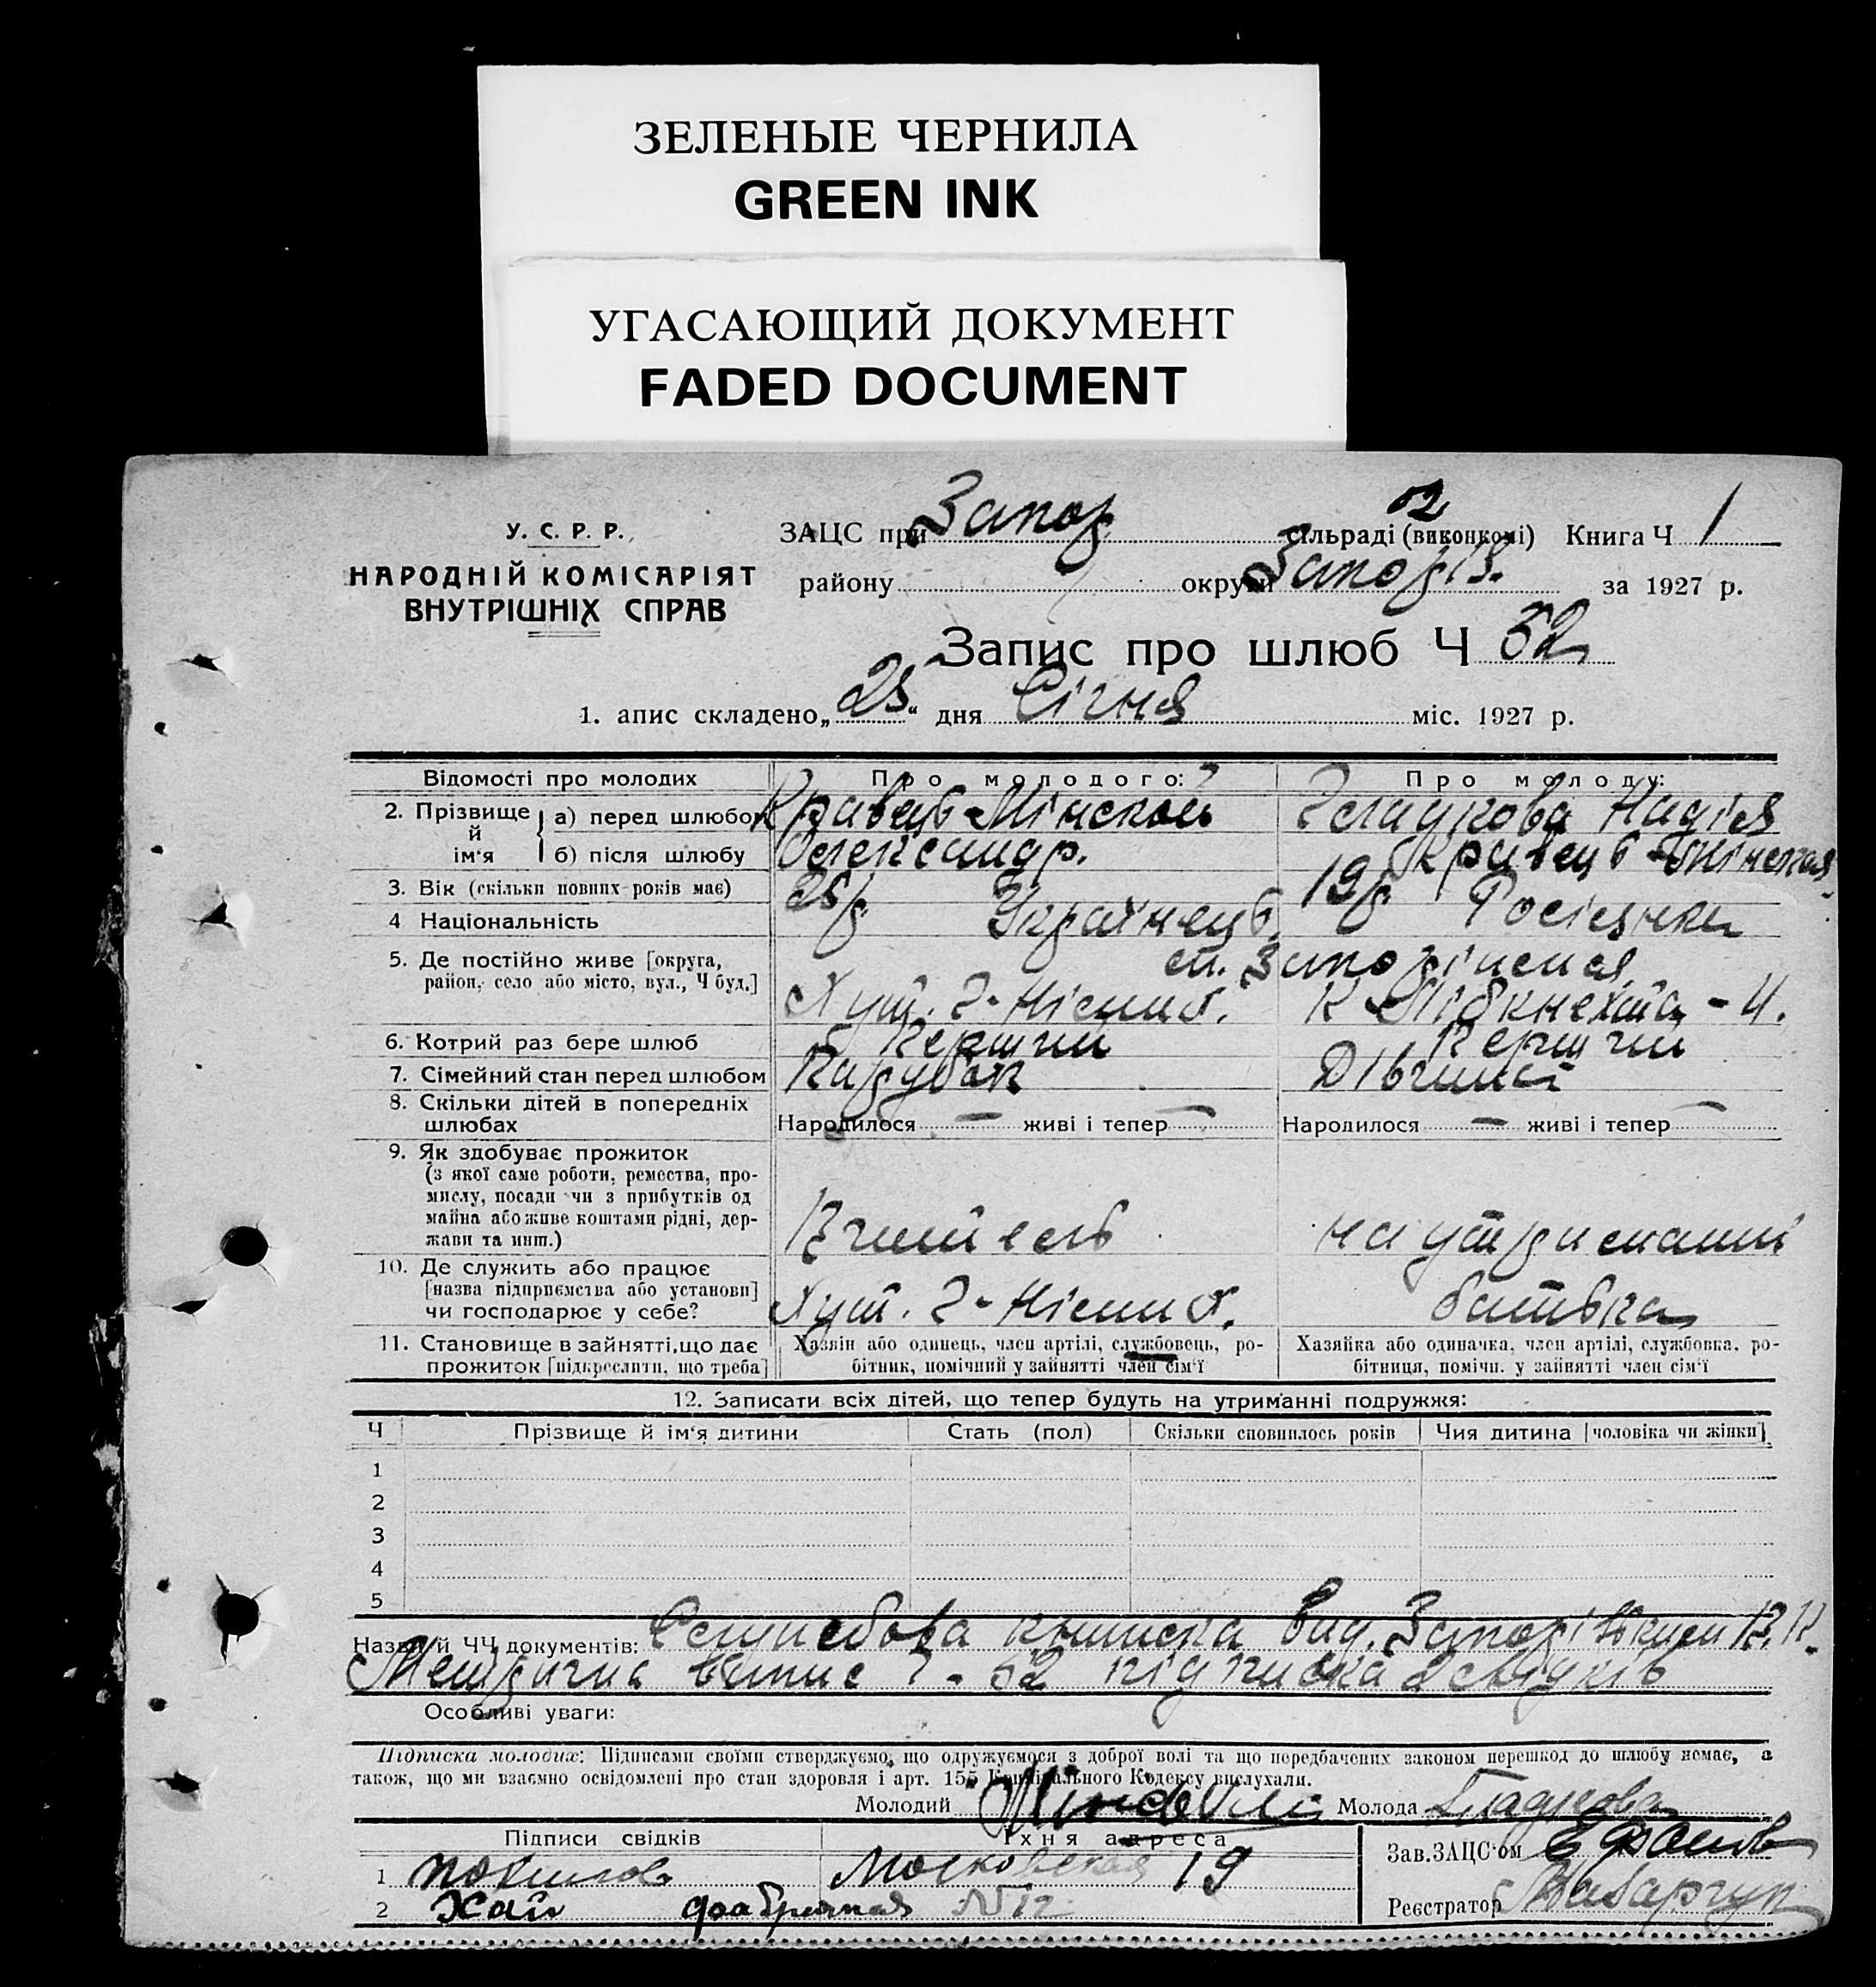 ЗЕЛЕНЫЕ ЧЕРНИЛА
GREEN INK
УГАСАЮЩИЙ ДОКУМЕНТ
FADED DOCUMENT
У. С. Р. Р.
НАРОДНІЙ КОМІСАРІЯТ
ВНУТРІШНІХ СПРАВ
ЗАЦС при Запор. сільраді (виконкомі) Книга Ч 1
району округи Запоріз. за 1927 р.
Запис про шлюб Ч 52
1. апис складено „25“ дня Січня міс. 1927 р.
Відомості про молодих Про молодого: Про молоду:
2. Прізвище й ім‘я а) перед шлюбом Кравець-Мінской Гладкова Надія
б) після шлюбу Олександр. Кравець-Мінская
3. Вік (скільки повних років має) 19р
4 Національність Українець Росіянка
5. Де постійно живе [округа, ст. Запоріжжя
район, село або місто, вул., Ч буд.] Хут. К Лібкнехта - 4.
6. Котрий раз бере шлюб Перший Перший
7. Сімейний стан перед шлюбом Парубок Дівчина
8. Скільки дітей в попередніх
шлюбах Народилося — живі і тепер — Народилося — живі і тепер —
9. Як здобуває прожиток
(з якої саме роботи, ремества, про-
мислу, посади чи з прибутків од
майна або живе коштами рідні, дер-
жави та инш.) Вчитель на утриманні
10. Де служить або працює
[назва підприємства або установи]
чи господарює у себе? Хут. батька
11. Становище в зайнятті, що дає Хазяїн або одинець, член артілі, службовець, ро- Хазяйка або одиначка, член артілі, службовка, ро-
прожиток [підкреслити, що треба] бітник, помічний у зайнятті член сім‘ї бітниця, помічн. у зайнятті член сім‘ї
12. Записати всіх дітей, що тепер будуть на утриманні подружжя:
Ч Прізвище й ім‘я дитини Стать (пол) Скільки сповнилось років Чия дитина [чоловіка чи жінки]
1
2
3
4
5
Назви й ЧЧ документів: Службова книжка вид.
Метрична випис Ч - 52 підписка
Особливі уваги:
Підписка молодих: Підписами своїми стверджуємо, що одружуємося з доброї волі та що передбачених законом перешкод до шлюбу немає, а
також, що ми взаємно освідомлені про стан здоровля і арт. 155 Кримінального Кодексу вислухали.
Молодий Молода Гладкова
Підписи свідків Їхня адреса Зав. ЗАЦС‘ом
1 Московская 19
2 Хай фабричная №12 Реєстратор